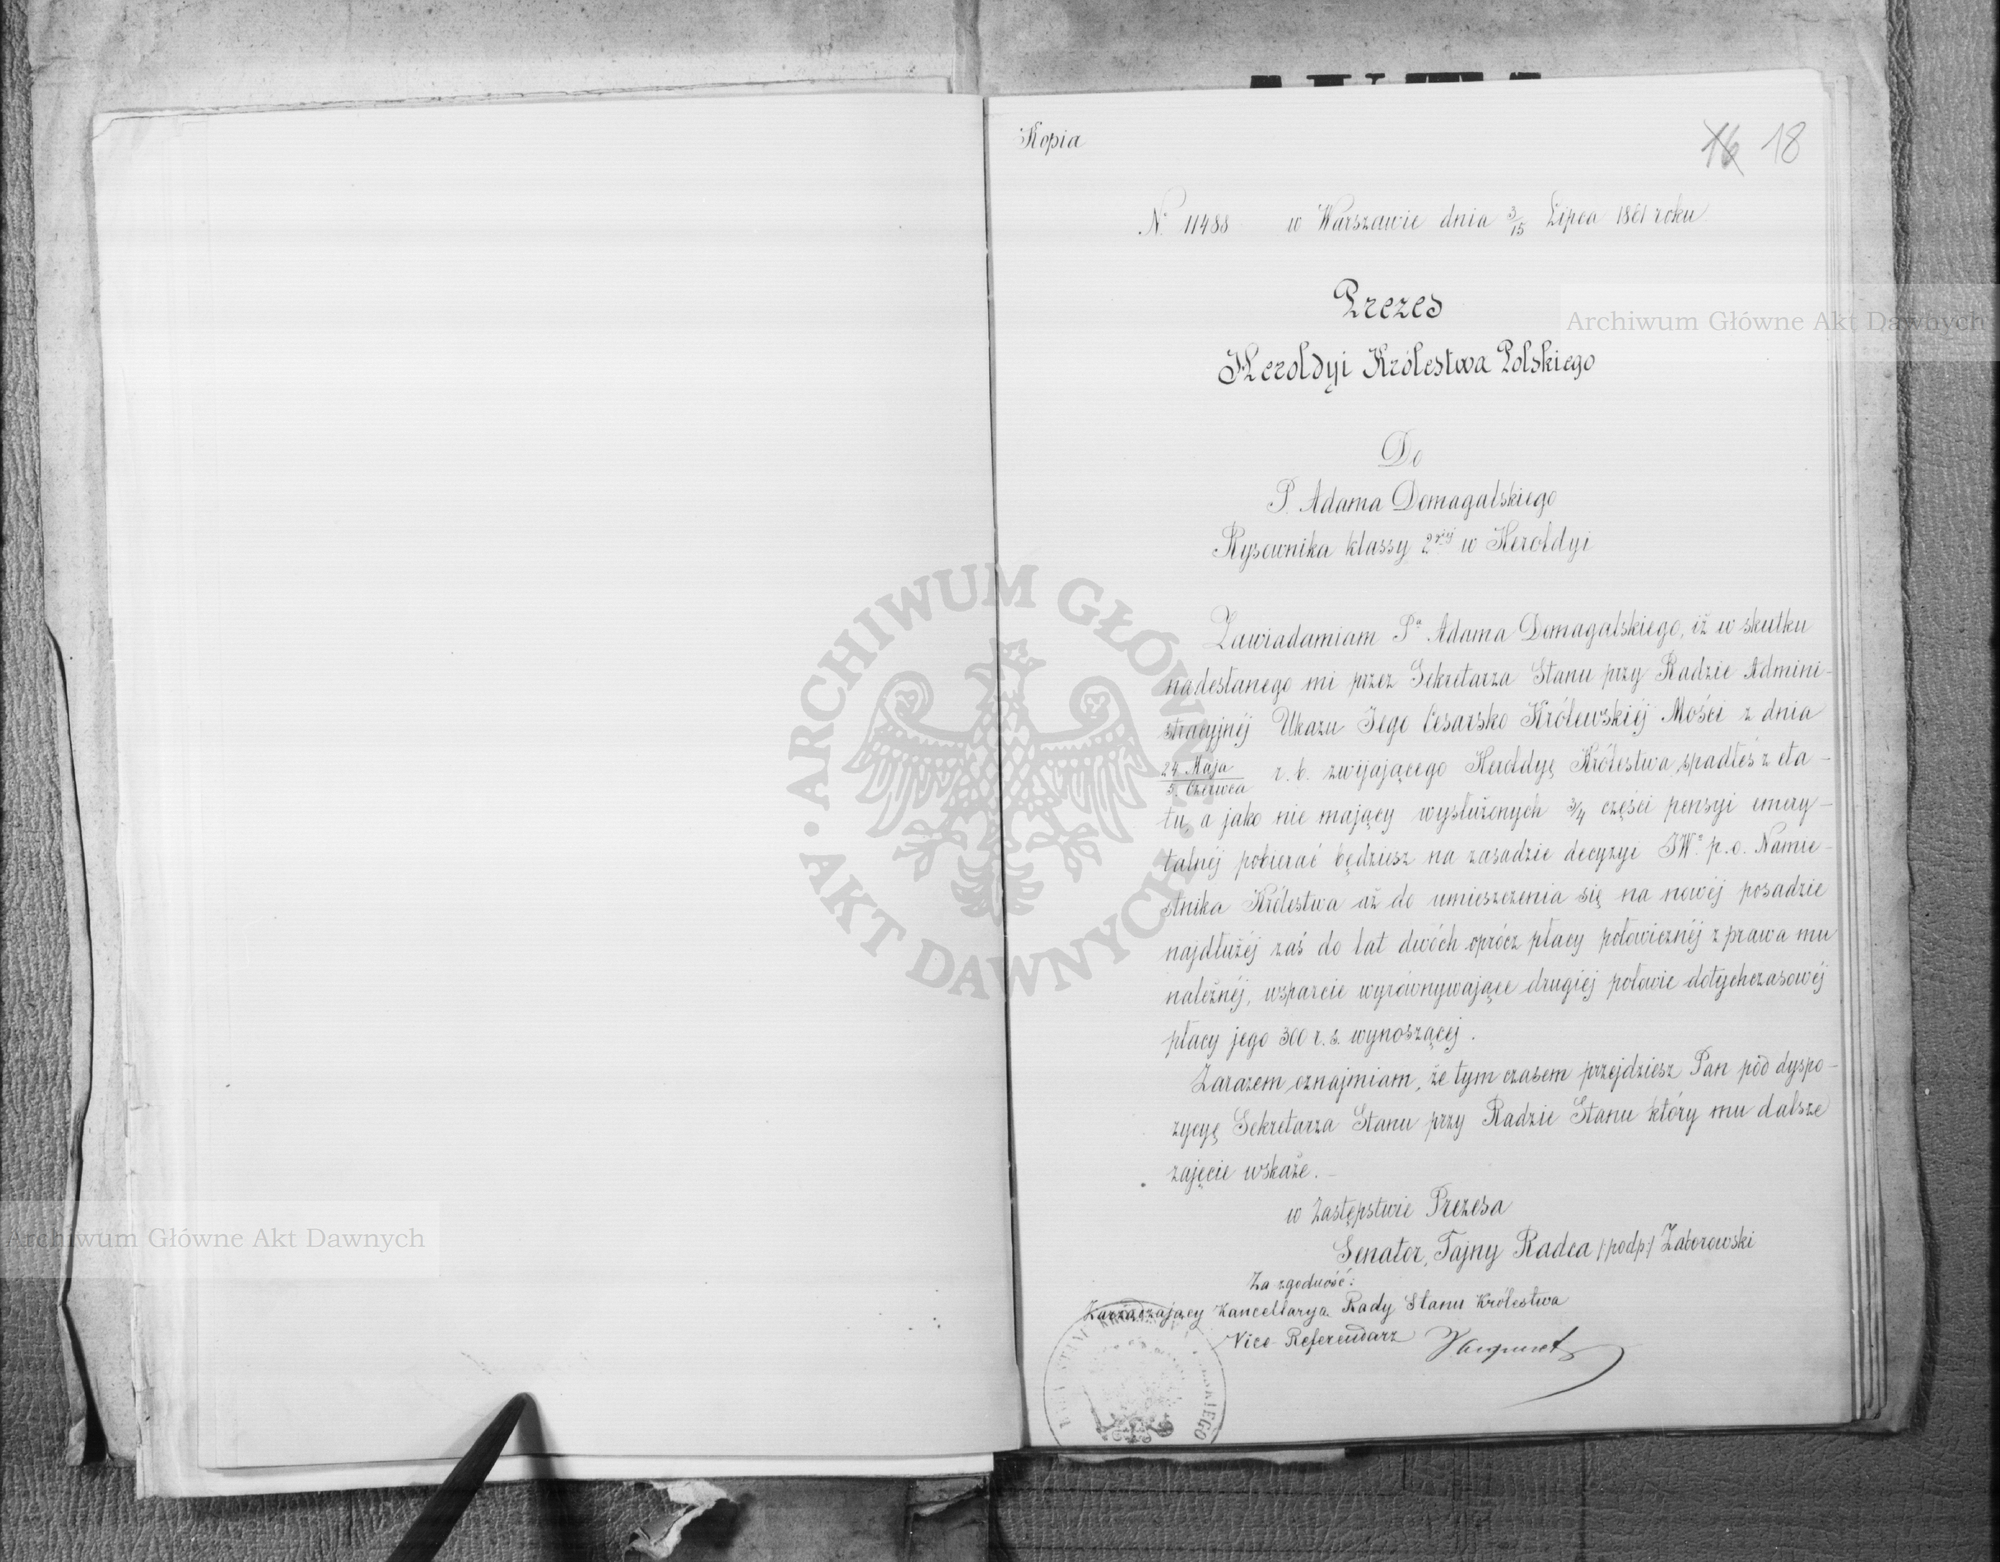 Kopia
16 18
N. 11488 w Warszawie dnia 3/15 Lipca 1861 roku
Prezes
Heroldyi Królestwa Polskiego
Do
P. Adama Domagalskiego
Rysownika klassy 2giéj w Heroldyi
Zawiadamiam Pa Adama Domagalskiego, iż w skutku
nadesłanego mi przez Sekretarza Stanu przy Radzie Admini-
stracyjnéj Ukazu Jego Cesarsko Królewskiéj Mości z dnia
24 Maja/5 Czerwca r. b. zwijającego Heroldyę Królestwa, spadłeś z eta-
tu, a jako nie mający wysłużonych 3/4 części pensyi emery-
talnéj pobierać będziesz na zasadzie decyzyi JW. p. o. Namie-
stnika Królestwa aż do umieszczenia się na nowéj posadzie
najdłużéj zaś do lat dwóch oprócz płacy połowicznéj z prawa mu
należnéj, wsparcie wyrównywające drugiéj połowie dotychczasowéj
płacy jego 300 r. s. wynoszącéj.
Zarazem oznajmiam, że tym czasem przejdziesz Pan pod dyspo-
zycyę Sekretarza Stanu przy Radzie Stanu który mu dalsze
zajęcie wskaże.
w Zastępstwie Prezesa
Senator, Tajny Radca /:podp:/ Zaborowski
Za zgodność:
Zarządzający Kancellarya Rady Stanu Królestwa
Vice Referendarz
Archiwum Główne Akt Dawnych
Archiwum Główne Akt Dawnych
ARCHIWUM GŁÓWNE AKT DAWNYCH